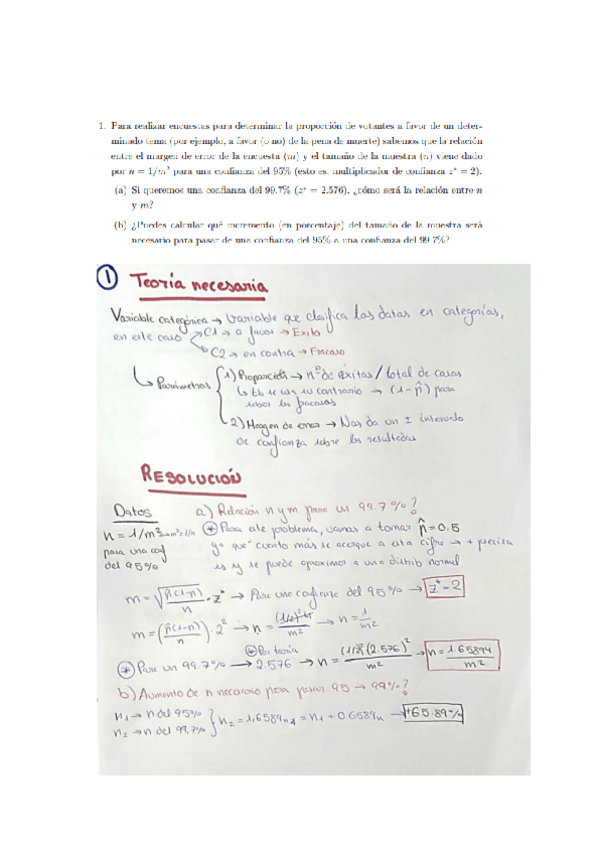 1. Para realizar encuestas para determinar la proporción de votantes a favor de un deter-
minado tema (por ejemplo, a favor (o no) de la pena de muerte) sabemos que la relación
entre el margen de error de la encuesta (m) y el tamaño de la muestra (n) viene dado
por n = 1/m² para una confianza del 95% (esto es, multiplicador de confianza z* = 2).
(a) Si queremos una confianza del 99.7% (z* = 2.576), ¿cómo será la relación entre n
y m?
(b) ¿Puedes calcular qué incremento (en porcentaje) del tamaño de la muestra será
necesario para pasar de una confianza del 95% a una confianza del 99.7%?
① Teoría necesaria
Variable categórica → Variable que clasifica los datos en categorías,
en este caso → C1 → a favor → Éxito
C2 → en contra → Fracaso
Parámetros
1) Proporción → nº de éxitos / total de casos
tb se usa su contrario → (1-p̂) para
saber los fracasos
2) Margen de error → Nos da un I intervalo
de confianza sobre los resultados
RESOLUCIÓN
Datos
a) Relación n y m para un 99.7%?
n = 1/m²
para una conf
del 95%
⊛ Para este problema, vamos a tomar p̂ = 0.5
ya que cuanto más se acerque a esta cifra → + precisa
es y se puede aproximar a una distrib normal
m = √(p̂(1-p̂)/n) · z* → Para una confianza del 95% → z* = 2
m = (p̂(1-p̂)/n) · 2² → n = (1/2)² · 4 / m² → n = 1/m²
⊛ Para un 99.7% → 2.576 → n = (1/2)² (2.576)² / m² → n = 1.65894 / m²
⊛ Por teoría
b) Aumento de n necesario para pasar 95 → 99%?
n₁ → n del 95%
n₂ → n del 99,7%
n₂ = 1,6589n₁ = n₁ + 0.6589n → +65.89%